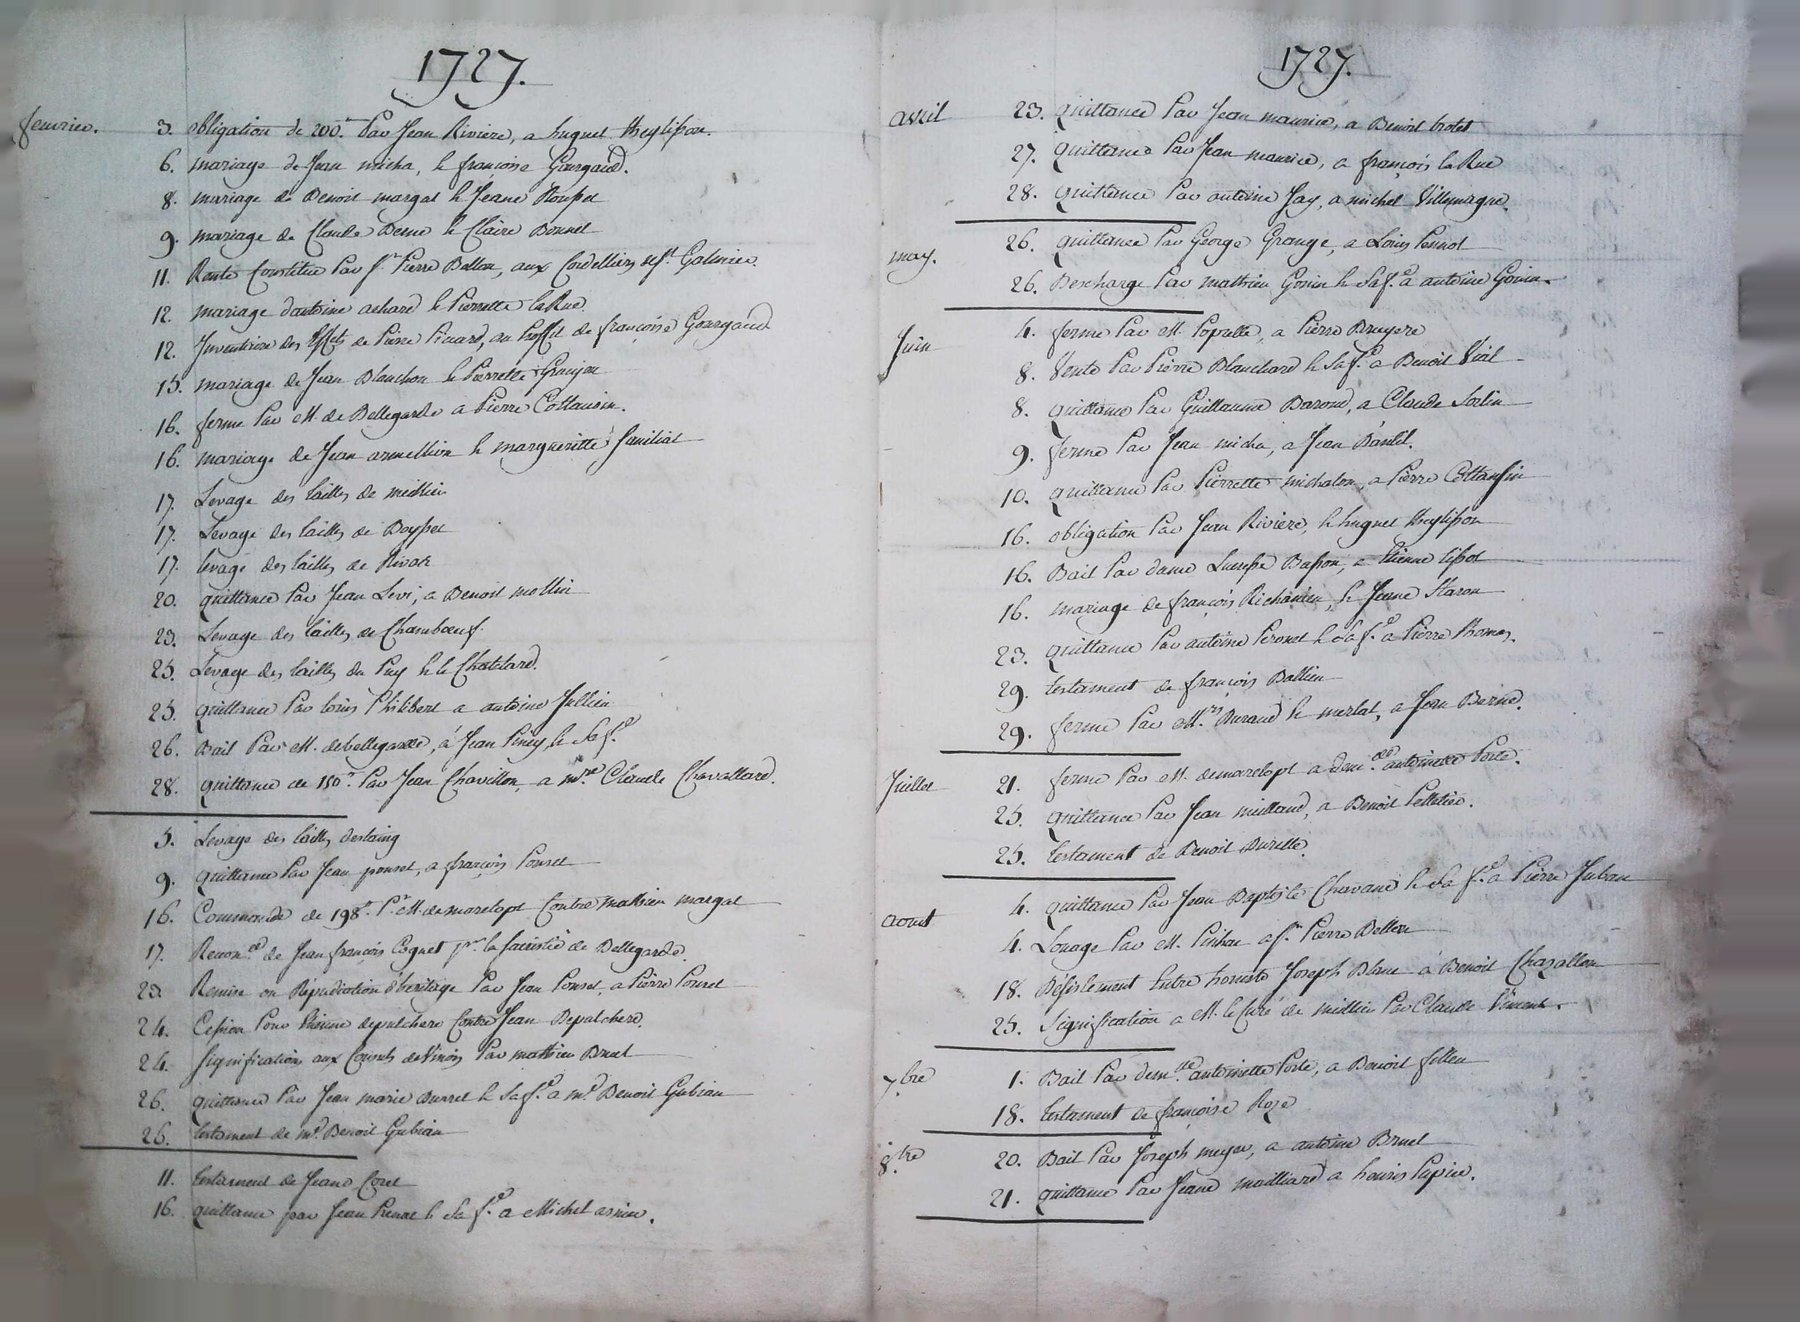 1727.
feuvrier. 3. obligation de 200.# Par Jean Riviere, a huguet theylisson.
6. mariage de Jean micha, & françoise Gourgaud.
8. mariage de Benoit margat & Jeane Rousset
9. mariage de Claude Berne & Claire Bonnet
11. Rente Constitue Par sr. Pierre Ballen, aux Cordelliers de st. Galmier.
12. mariage dantoine achard & Pierrette la Rue
12. Inventaire des Effets de Pierre Picard, au Proffit de françoise Gourgaud
15. mariage de Jean Blanchon & Pierrette Granjon
16. ferme Par M. de Bellegarde a Pierre Cottansin.
16. mariage de Jean & margueritte
17. Levage des tailles de meillieu
17. Levage des tailles de Boysset
17. levage des tailles de Rivas
20. quittance Par Jean Levi, a Benoit mollin
23. Levage des tailles de Chambœuf.
25. Levage des tailles du Puy & le Chatelard.
25. quittance Par Louis Philibert a antoine Jullien
26. Bail Par M. de bellegarde, à Jean Piney & sa f.e
28. quittance de 150# Par Jean Chavillon, a mre Claude Chavallard.
5. Levage des tailles destaing
9. quittance Par Jean ponset, a françois Ponset
16. Commande de 198#. Pr. M. de marclopt Contre Mathieu margat
17. Recon.ce de Jean françois Coquet pr. la sacristie de Bellegarde.
23. Remise ou Repudiation d'heritage Par Jean Ponset, a Pierre Ponset
24. Cession Pour Etienne depalchere Contre Jean Depalchere.
24. signification aux Consuls de Virois Par mathieu Bruel
26. quittance Par Jean marie & sa f.e a md. Benoit Gubian
26. testament de md. Benoit Gubian
11. testament de Jeane Coret
16. quittance par Jean & sa f.e a Michel
1727.
avril 23. quittance Par Jean maurice, a Benoit trotet
27. quittance Par Jean maurice, a françois la Rue
28. quittance Par antoine Jay, a michel Villemagne.
may. 26. quittance Par George Grange, a Louis Ponsot
26. Descharge Par mathieu Gonin & sa f.e a antoine Gonin.
Juin 4. ferme Par M. Popvelle, a Pierre Bruyere
8. Vente Par Pierre Blanchard & sa f.e a Benoit Vial
8. quittance Par Guillaume Baroud, a Claude
9. ferme Par Jean micha, a Jean
10. quittance Par Pierrette michalon, a Pierre Cottansin
16. obligation Par Jean Riviere, & huguet theylisson
16. Bail Par dame Basson, a Etienne tissot
16. mariage de françois Richanieu, & Jeane Staron
23. quittance Par antoine Peronet & sa f.e a Pierre thomas.
29. testament de françois Ballien
29. ferme Par M.rs Durand & merlat, a Jean Berne.
Juillet 21. ferme Par M. de marclopt a dem.lle antoinette Porte.
25. quittance Par Jean meilland, a Benoit Pelletier.
25. testament de Benoit Durette
aoust 4. quittance Par Jean Baptiste Chavane & sa f.e a Pierre Juban
4. Louage Par M. a sr. Pierre Bellen
18. Désistement Entre honneste Joseph Blanc a Benoit Chazallon
25. signiffication a M. le Curé de meillieu Par Claude Vincent.
7.bre 1. Bail Par dem.lle antoinette Porte, a Benoit fillieu
18. testament de françoise Roze
8.bre 20. Bail Par Joseph meyer, a antoine Bruel
21. quittance Par Jeane mailliard a Louis Papier.